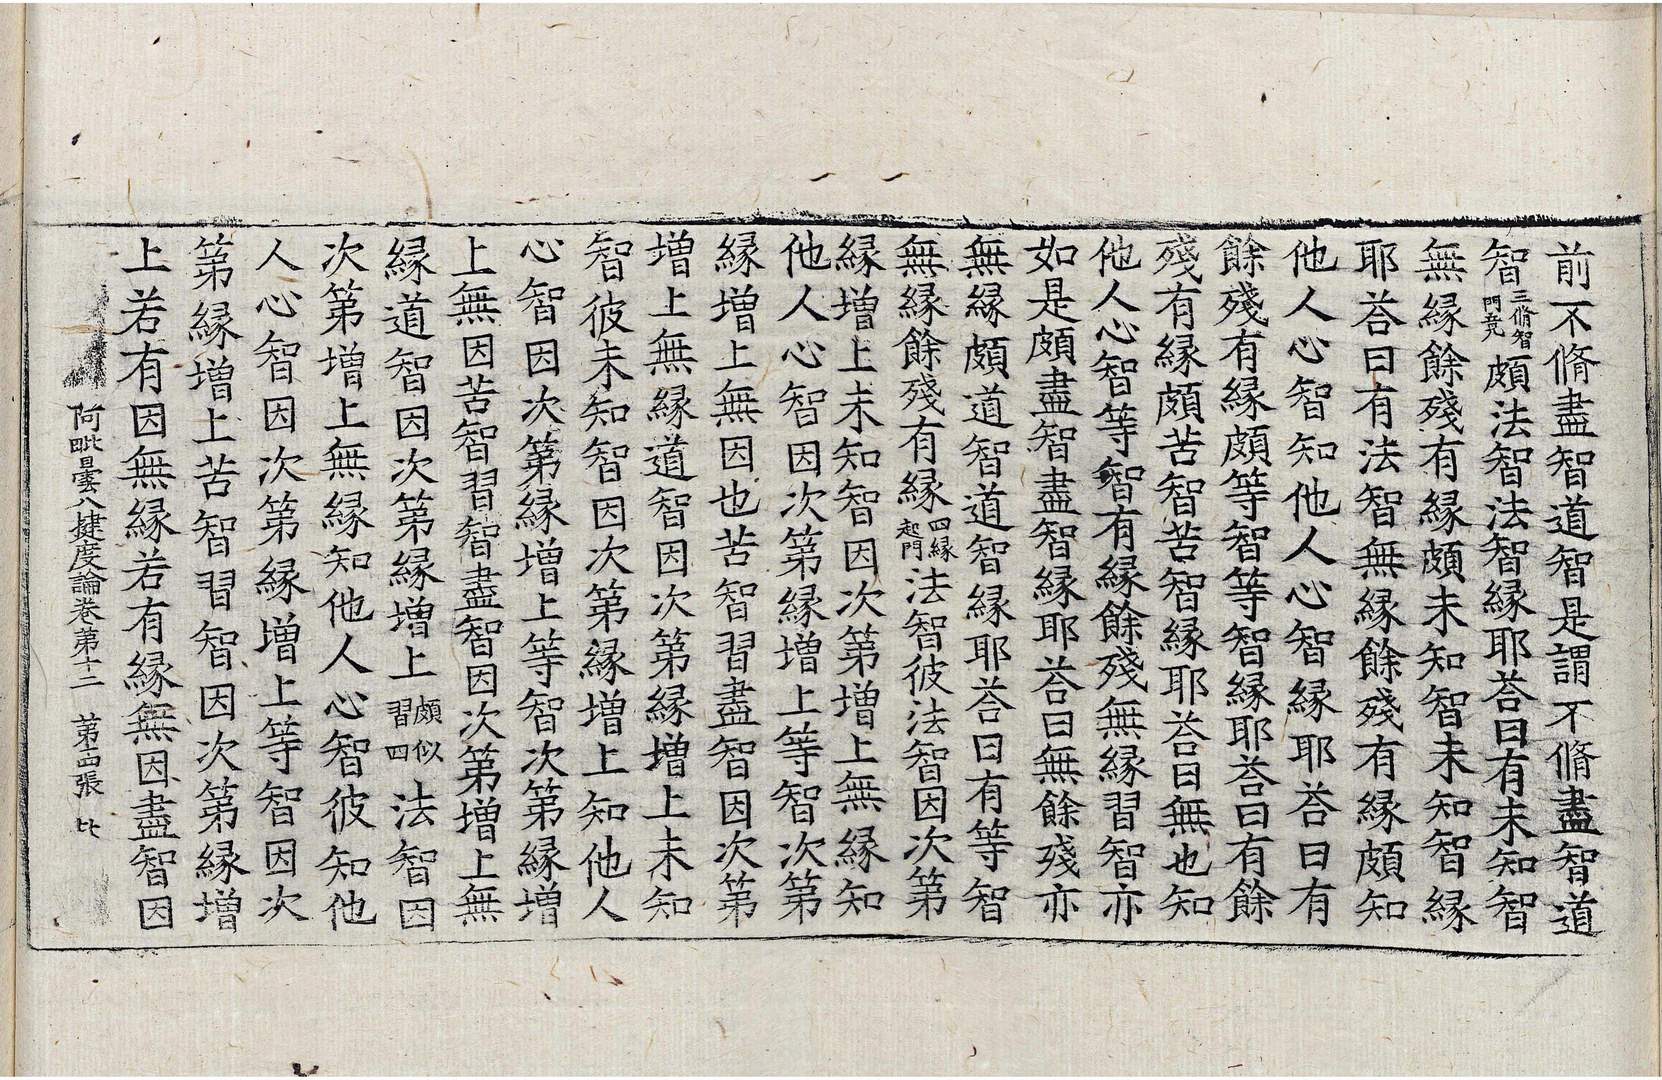 前不脩盡智道智是謂不脩盡智道
智三脩智門竟頗法智法智縁耶荅曰有未知智
無縁餘殘有縁頗未知智未知智縁
耶荅曰有法智無縁餘殘有縁頗知
他人心智知他人心智縁耶荅曰有
餘殘有縁頗等智等智縁耶荅曰有餘
殘有縁頗苦智苦智縁耶荅曰無也知
他人心智等智有縁餘殘無縁習智亦
如是頗盡智盡智縁耶荅曰無餘殘亦
無縁頗道智道智縁耶荅曰有等智
無縁餘殘有縁四縁起門法智彼法智因次第
縁増上未知智因次第増上無縁知
他人心智因次第縁増上等智次第
縁増上無因也苦智習盡智因次第
増上無縁道智因次第縁増上未知
智彼未知智因次第縁増上知他人
心智因次第縁増上等智次第縁増
上無因苦智習智盡智因次第増上無
縁道智因次第縁増上頗似習四法智因
次第増上無縁知他人心智彼知他
人心智因次第縁増上等智因次
第縁増上苦智習智因次第縁増
上若有因無縁若有縁無因盡智因
阿毗曇八揵度論卷第十二 第十四張 比